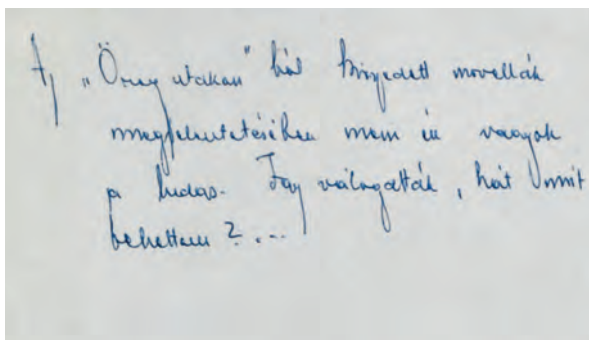 Az „Öreg utakon” ból kiszedett novellák
megjelentetésében nem én vagyok
a ludas. Így válogatták, hát mit
tehettem ?...